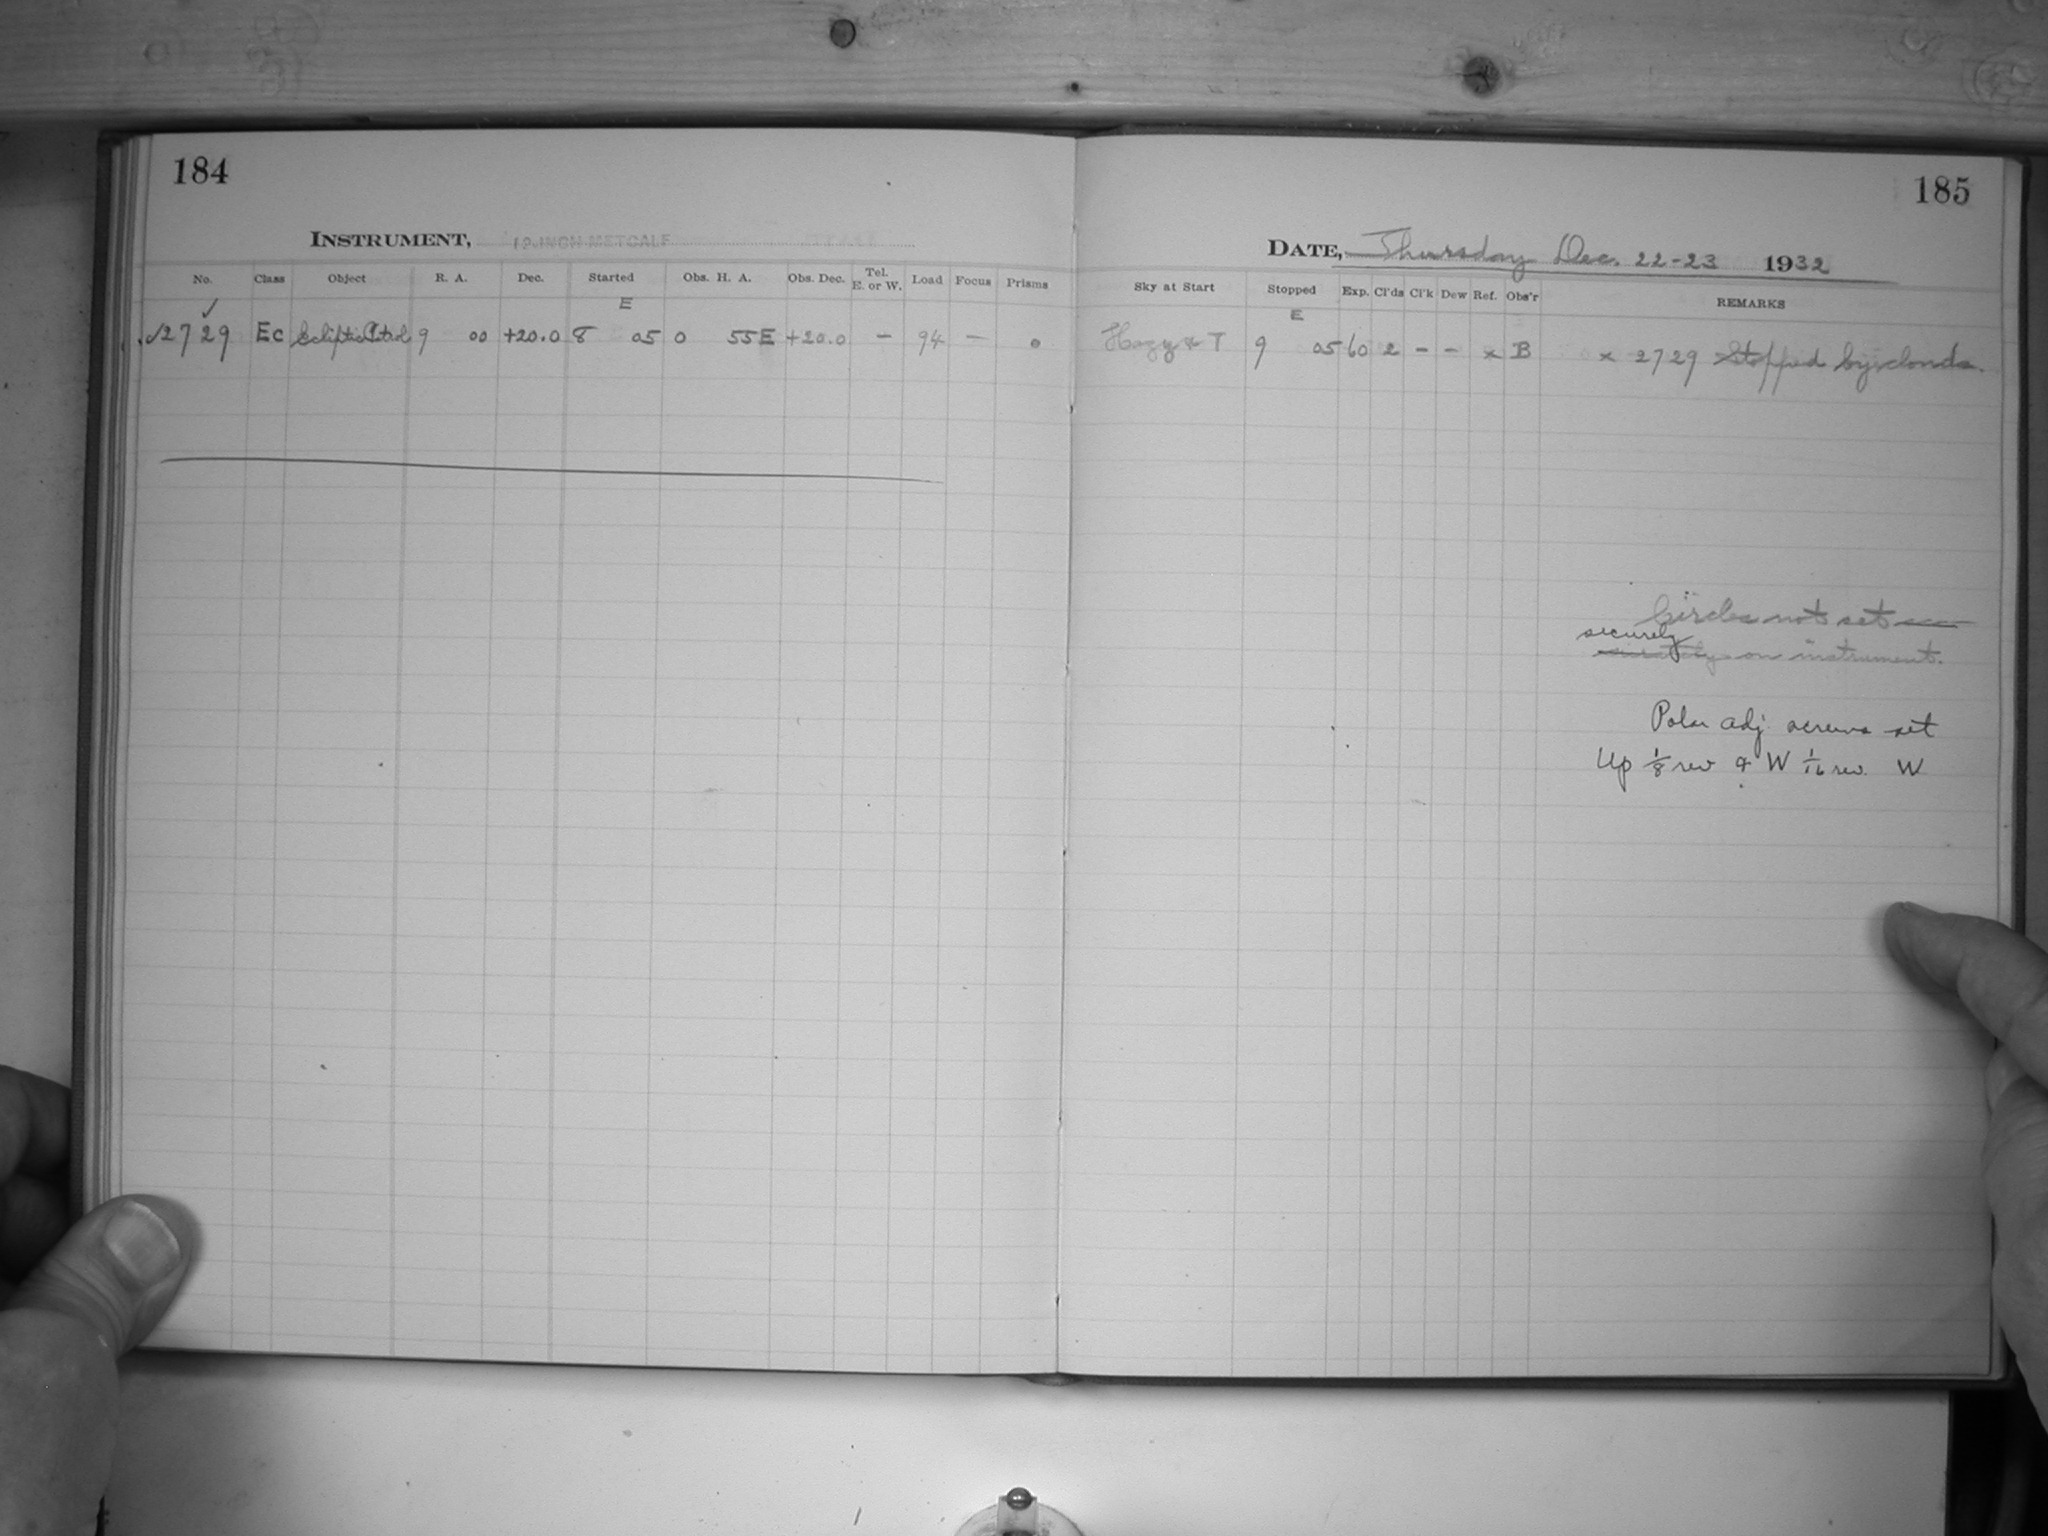 184
INSTRUMENT, 10-INCH METCALF
No. Class Object R. A. Dec. Started Obs. H. A. Obs. Dec. Tel. E. or W. Load Focus Prisms
✓ E
✓2729 Ec Ecliptic Patrol 9 00 +20.0 8 05 0 55E +20.0 — 94 — 0
185
DATE, Thursday Dec. 22-23 1932
Sky at Start Stopped Exp. Cl'ds Cl'k Dew Ref. Obs'r REMARKS
E
Hazy & T 9 05 60 2 — — x B x 2729 Stopped by clouds.
Circles not set
securely
on instrument.
Polar adj. screws set
Up 1/8 rev & W 1/16 rev. W